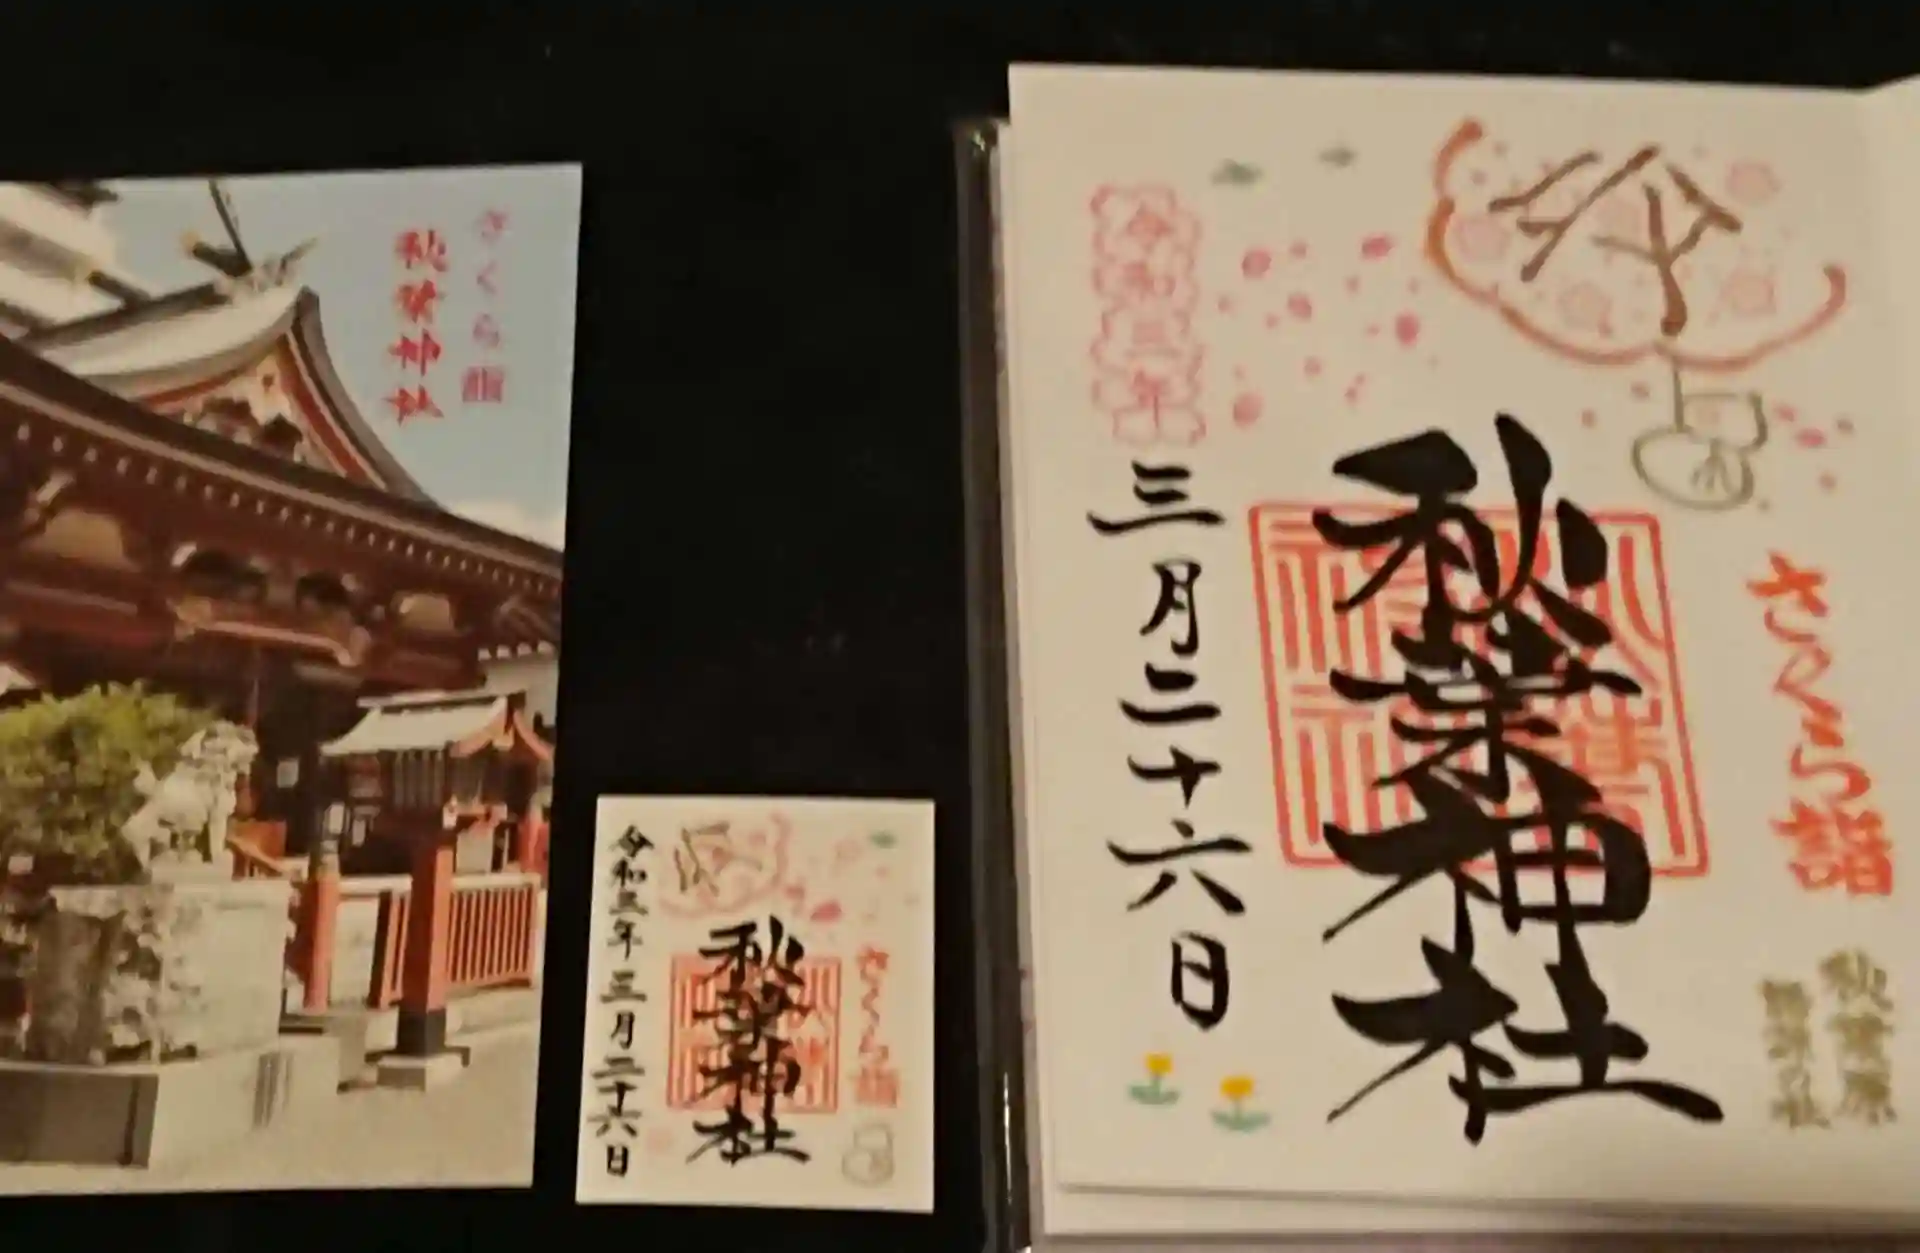 さくら詣
秋葉神社
さくら詣
秋葉神社
令和三年三月二十六日
さくら詣
秋葉神社
令和三年
三月二十六日